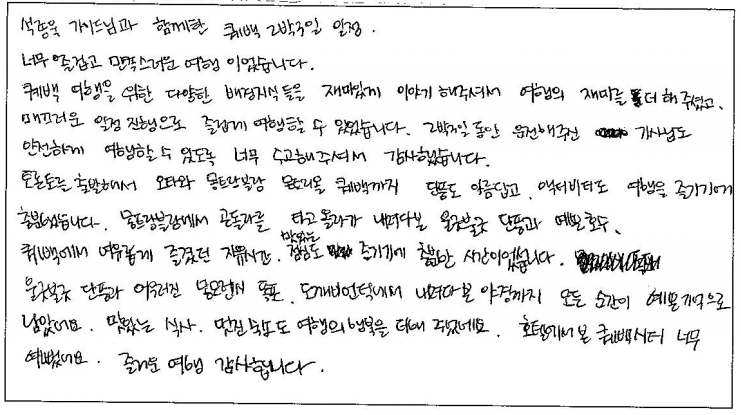 석종욱 가이드님과 함께한 퀘백 2박3일 일정.
너무 즐겁고 만족스러운 여행 이었습니다.
퀘백 여행을 위한 다양한 배경지식들을 재미있게 이야기 해주셔서 여행의 재미를 더해 주셨고,
매끄러운 일정 진행으로 즐겁게 여행할 수 있었습니다. 2박3일 동안 운전해주신 기사님도
안전하게 여행할 수 있도록 너무 수고해주셔서 감사했습니다.
토론토를 출발해서 오타와 몽트랑블랑 몬트리올 퀘백까지 단풍도 아름답고, 액티비티도 여행을 즐기기에
충분했습니다. 몽트랑블랑에서 곤돌라를 타고 올라가 내려다본 울긋불긋 단풍과 예쁜호수,
퀘백에서 여유롭게 즐겼던 자유시간, 맛있는 점심도 즐기기에 충분한 시간이었습니다.
울긋불긋 단풍과 어우러진 몽모렌시 폭포, 도깨비언덕에서 내려다본 야경까지 모든 순간이 예쁜기억으로
남았네요. 맛있는 식사, 멋진숙소도 여행의 행복을 더해 주었네요. 호텔에서 본 퀘백시티 너무
예뻤네요. 즐거운 여행 감사합니다.